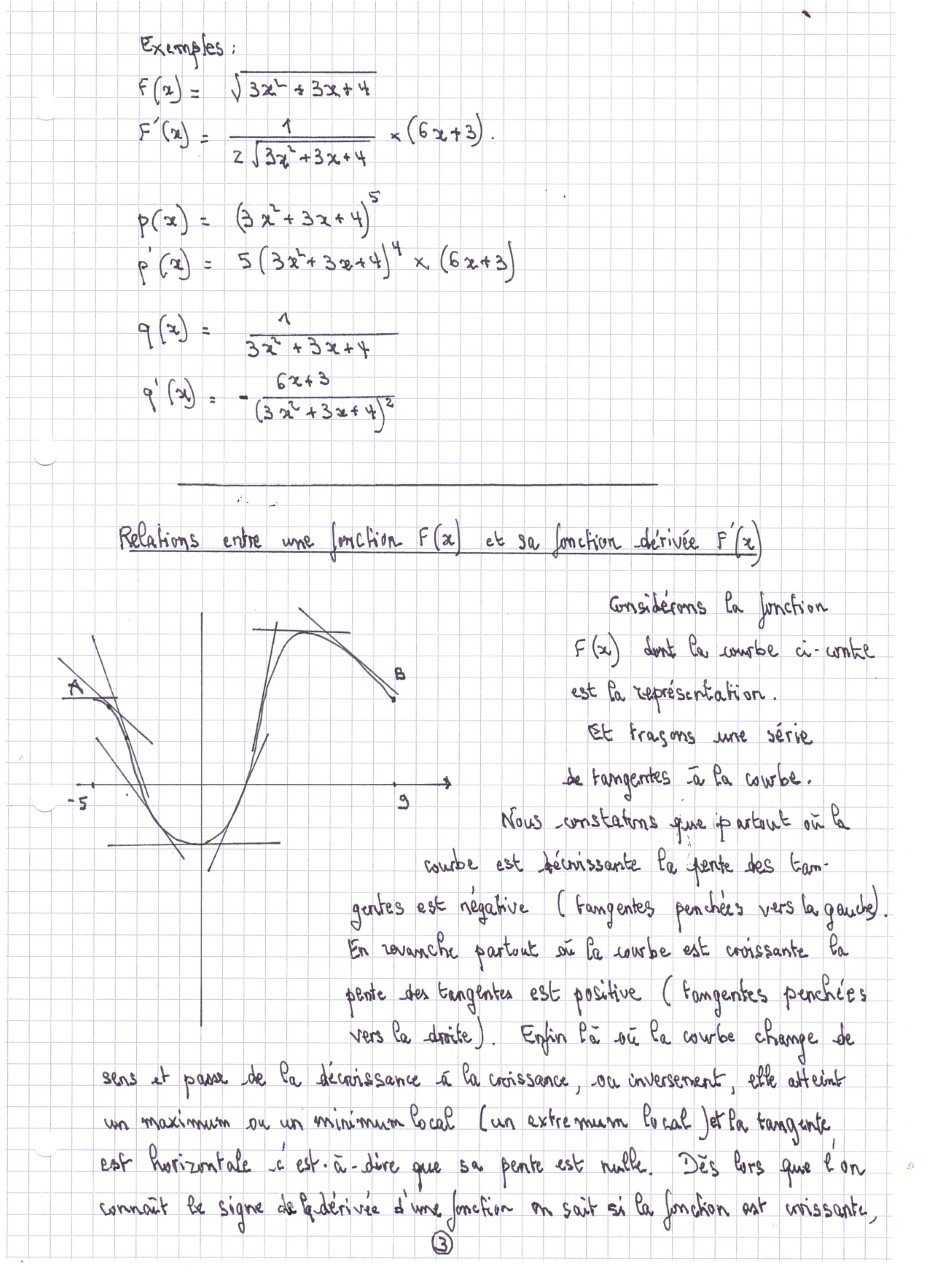 Exemples :
F(x) = √(3x² + 3x + 4)
F'(x) = 1 / (2√(3x² + 3x + 4)) × (6x+3).
p(x) = (3x² + 3x + 4)⁵
p'(x) = 5(3x² + 3x + 4)⁴ × (6x+3)
q(x) = 1 / (3x² + 3x + 4)
q'(x) = - (6x+3) / (3x² + 3x + 4)²
Relations entre une fonction F(x) et sa fonction dérivée F'(x)
Considérons la fonction
F(x) dont la courbe ci-contre
est la représentation.
Et traçons une série
de tangentes à la courbe.
A
B
-5
9
Nous constatons que partout où la
courbe est décroissante la pente des tan-
gentes est négative (tangentes penchées vers la gauche).
En revanche partout où la courbe est croissante la
pente des tangentes est positive (tangentes penchées
vers la droite). Enfin là où la courbe change de
sens et passe de la décroissance à la croissance, ou inversement, elle atteint
un maximum ou un minimum local (un extremum local) et la tangente
est horizontale c'est-à-dire que sa pente est nulle. Dès lors que l'on
connaît le signe de la dérivée d'une fonction on sait si la fonction est croissante,
3